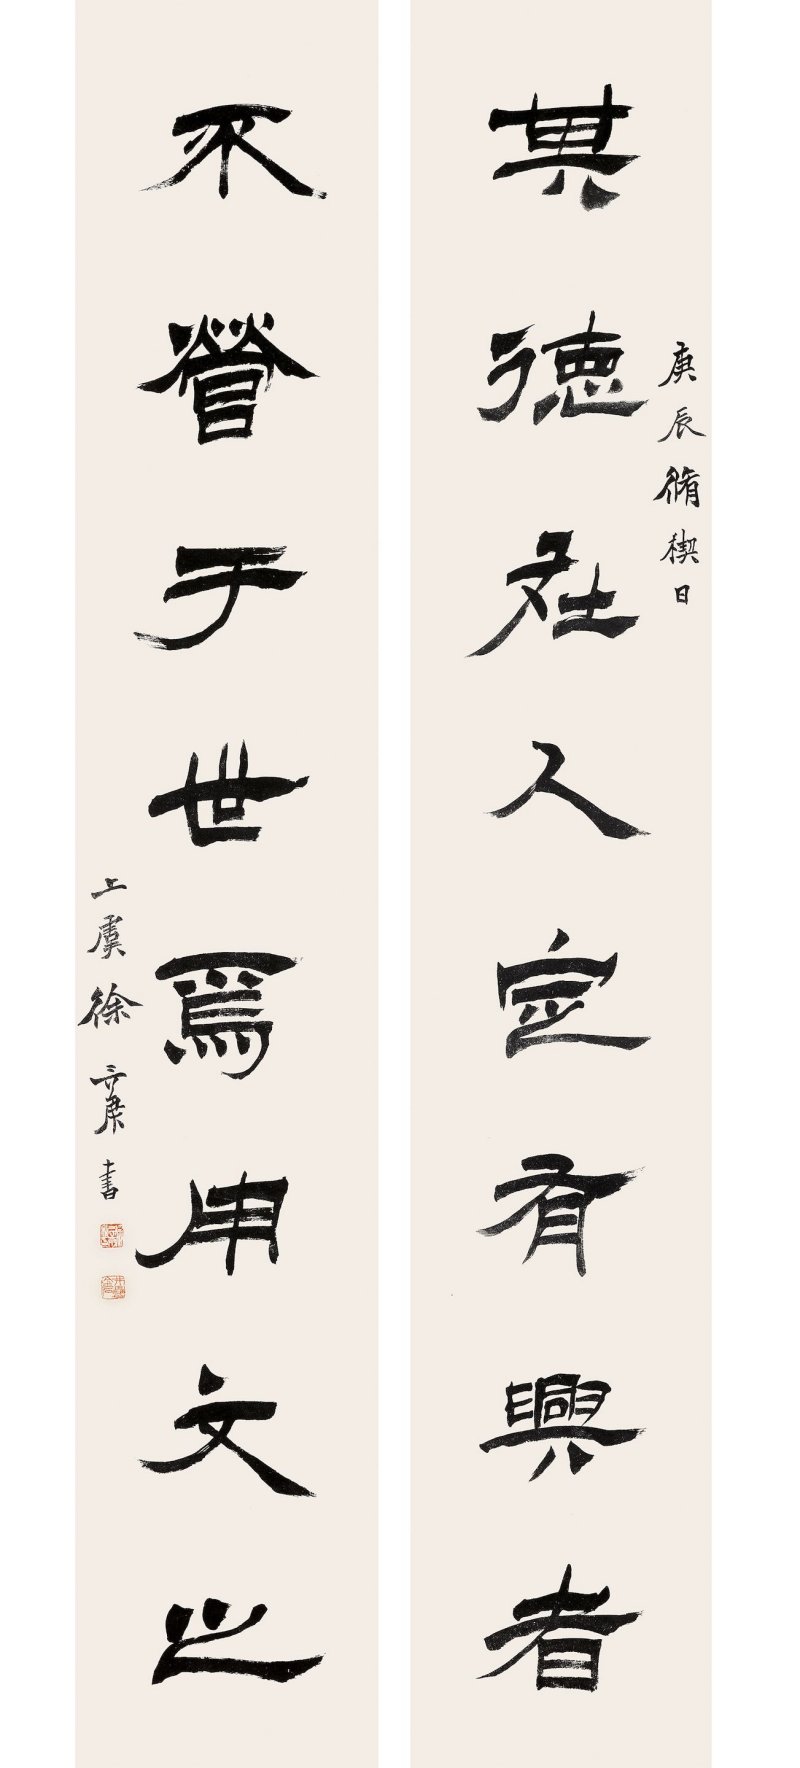 其德在人定有興者
庚辰脩禊日
不營于世焉用文之
上虞徐三庚書